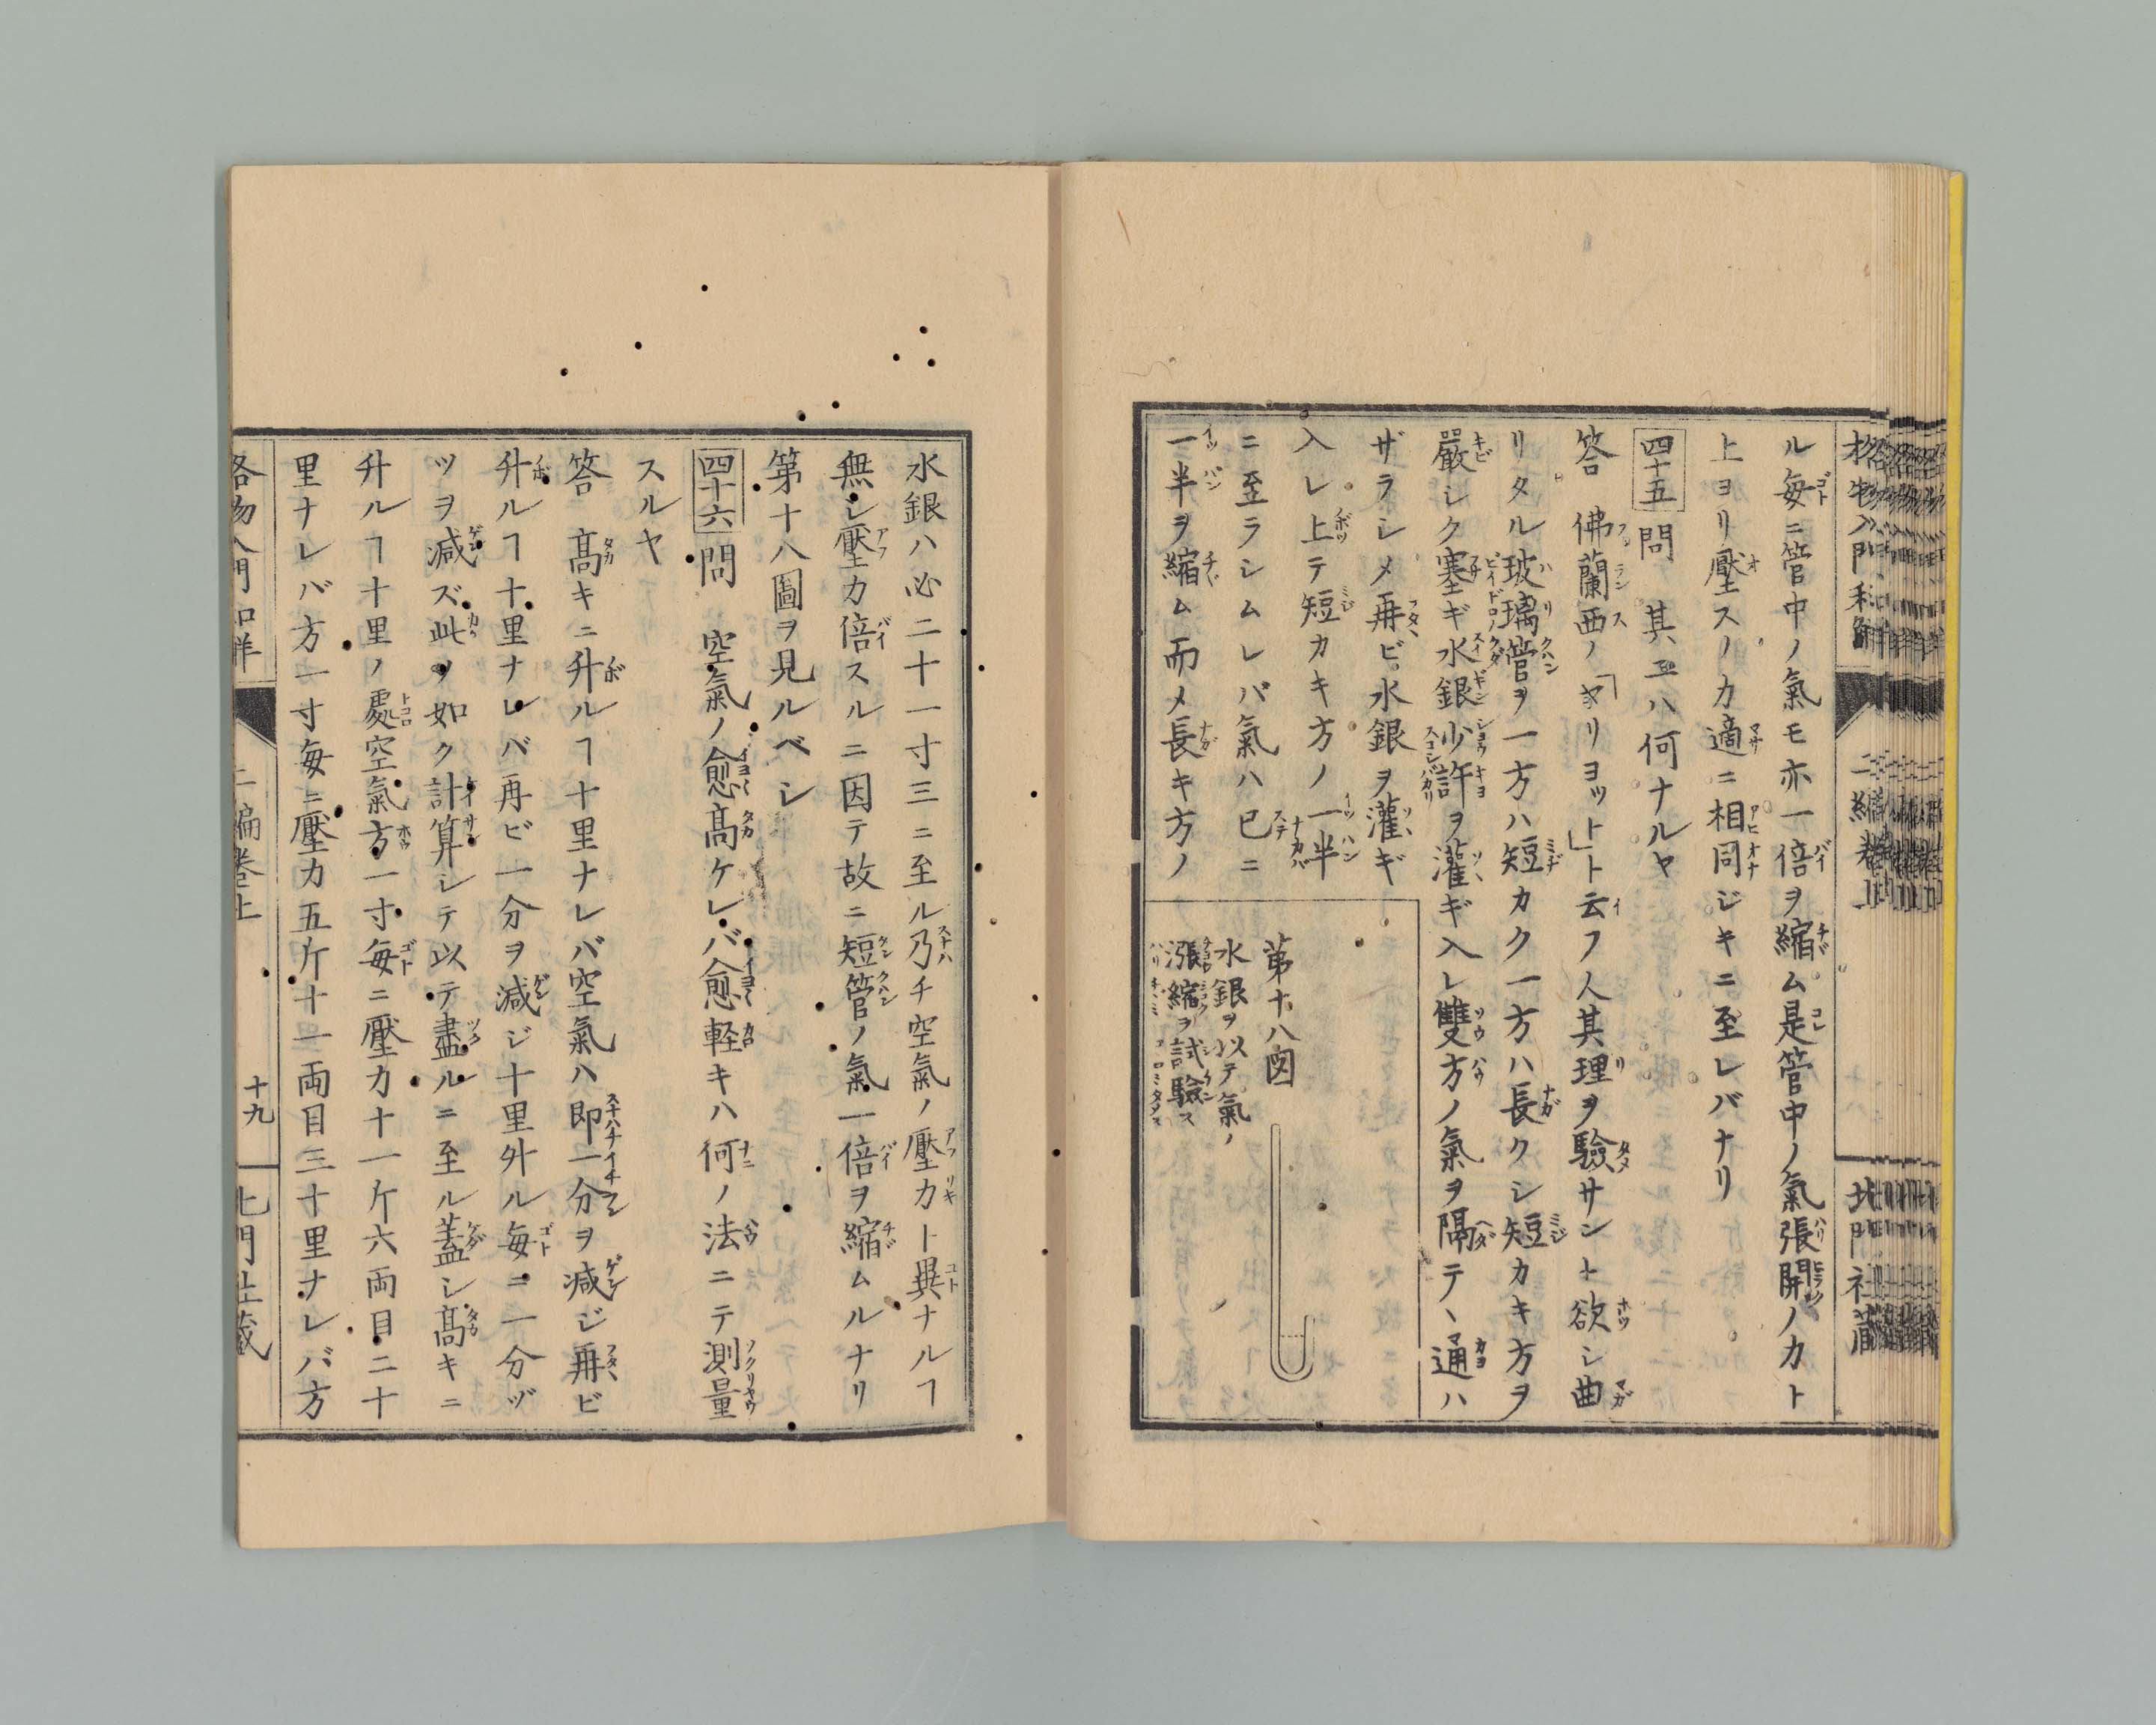 格物入門和解
二編卷上
北門社藏
ル毎ニ管中ノ氣モ亦一倍ヲ縮ム是管中ノ氣張開ノ力ト
上ヨリ壓スノ力適ニ相同ジキニ至レバナリ
四十五問 其証ハ何ナルヤ
答 佛蘭西ノ「マリヨット」ト云フ人其理ヲ驗サント欲シ曲
リタル玻璃管ヲ一方ハ短カク一方ハ長クシ短カキ方ヲ
嚴シク塞ギ水銀少許ヲ灌ギ入レ雙方ノ氣ヲ隔テヽ通ハ
ザラシメ再ビ水銀ヲ灌ギ
入レ上テ短カキ方ノ一半
ニ至ラシムレバ氣ハ已ニ
一半ヲ縮ム而メ長キ方ノ
第十八図
水銀ヲ以テ氣ノ
漲縮ヲ試驗ス
水銀ハ必二十一寸三ニ至ル乃チ空氣ノ壓力ト異ナルヿ
無シ壓力倍スルニ因テ故ニ短管ノ氣一倍ヲ縮ムルナリ
第十八圖ヲ見ルベシ
四十六問 空氣ノ愈高ケレバ愈軽キハ何ノ法ニテ測量
スルヤ
答 高キニ升ルヿ十里ナレバ空氣ハ即一分ヲ減ジ再ビ
升ルヿ十里ナレバ再ビ一分ヲ減ジ十里外ル毎ニ一分ヅ
ツヲ減ズ此ノ如ク計算シテ以テ盡ルニ至ル蓋シ高キニ
升ルヿ十里ノ處空氣方一寸毎ニ壓力十一斤六両目二十
里ナレバ方一寸毎ニ壓力五斤十一両目三十里ナレバ方
格物入門和解
二編卷上
十九
北門社藏